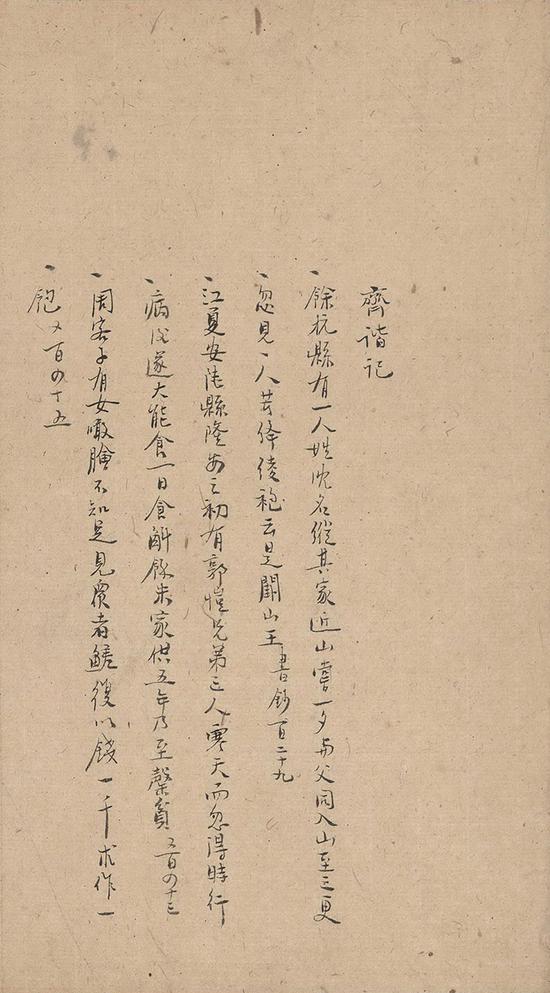 齊諧記
餘杭縣有一人姓沈名縱其家近山嘗一夕與父同入山至三更
忽見一人著絳綾袍云是鬭山王書鈔百二十九
江夏安陸縣隆安之初有郭愷兄弟三人寒天而忽得時行
病後遂大能食一日食斛餘米家供五年乃至罄貧又百四十三
周客子有女噉膾不知足見賣者鱔復以錢一千求作一
飽又百四十五